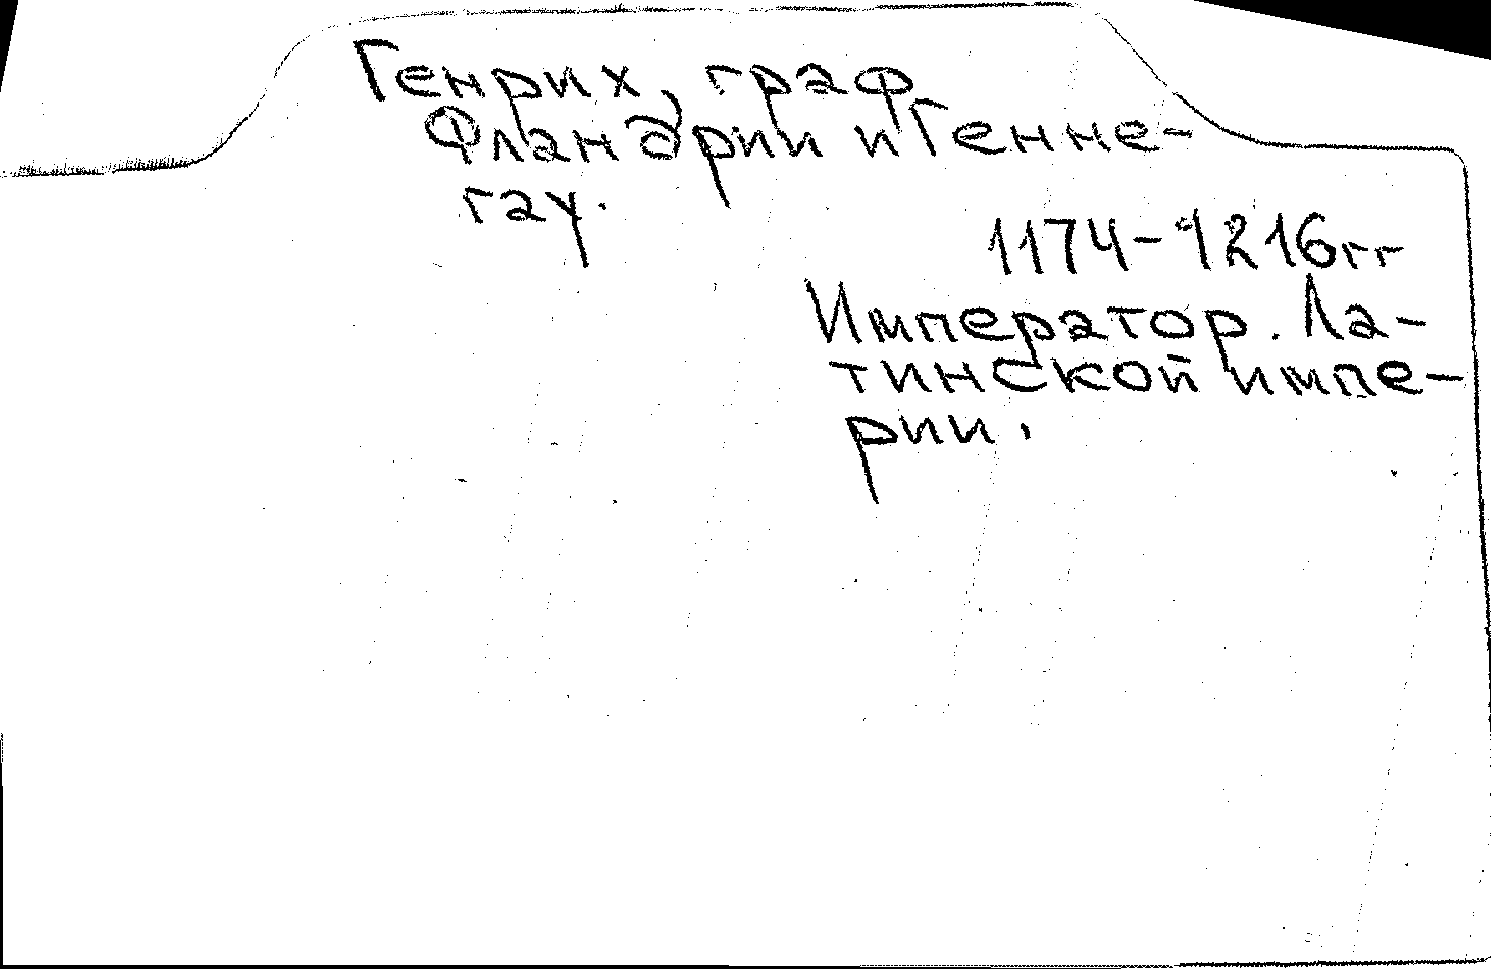 Генрих, граф
Фландрии и Генне-
гау.
1174-1216гг
Император. Ла-
тинской импе-
рии.